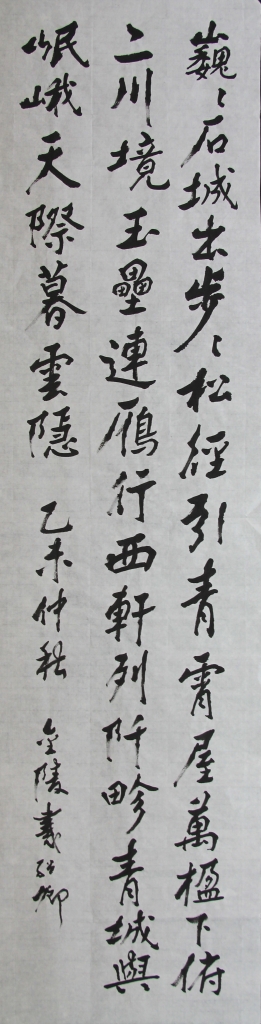 巍〻石城出步〻松徑引青霄屋萬楹下俯
二川境玉壘連鴈行西軒列阡畛青城與
岷峨天際暮雲隱 乙未仲秋 金陵